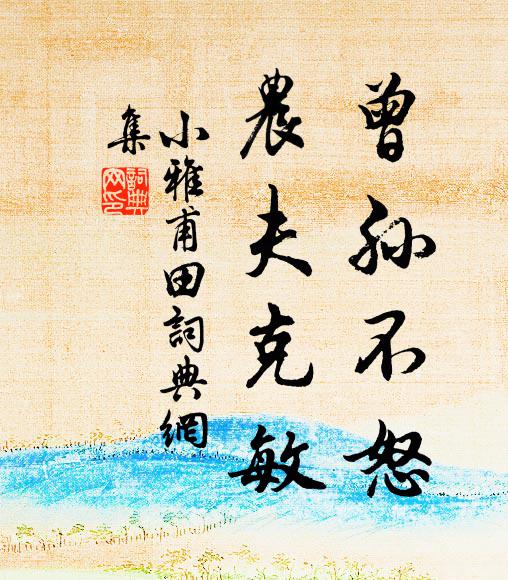 曾孙不怒
農夫克敏
小雅甫田詞典網
集
詞典
网印